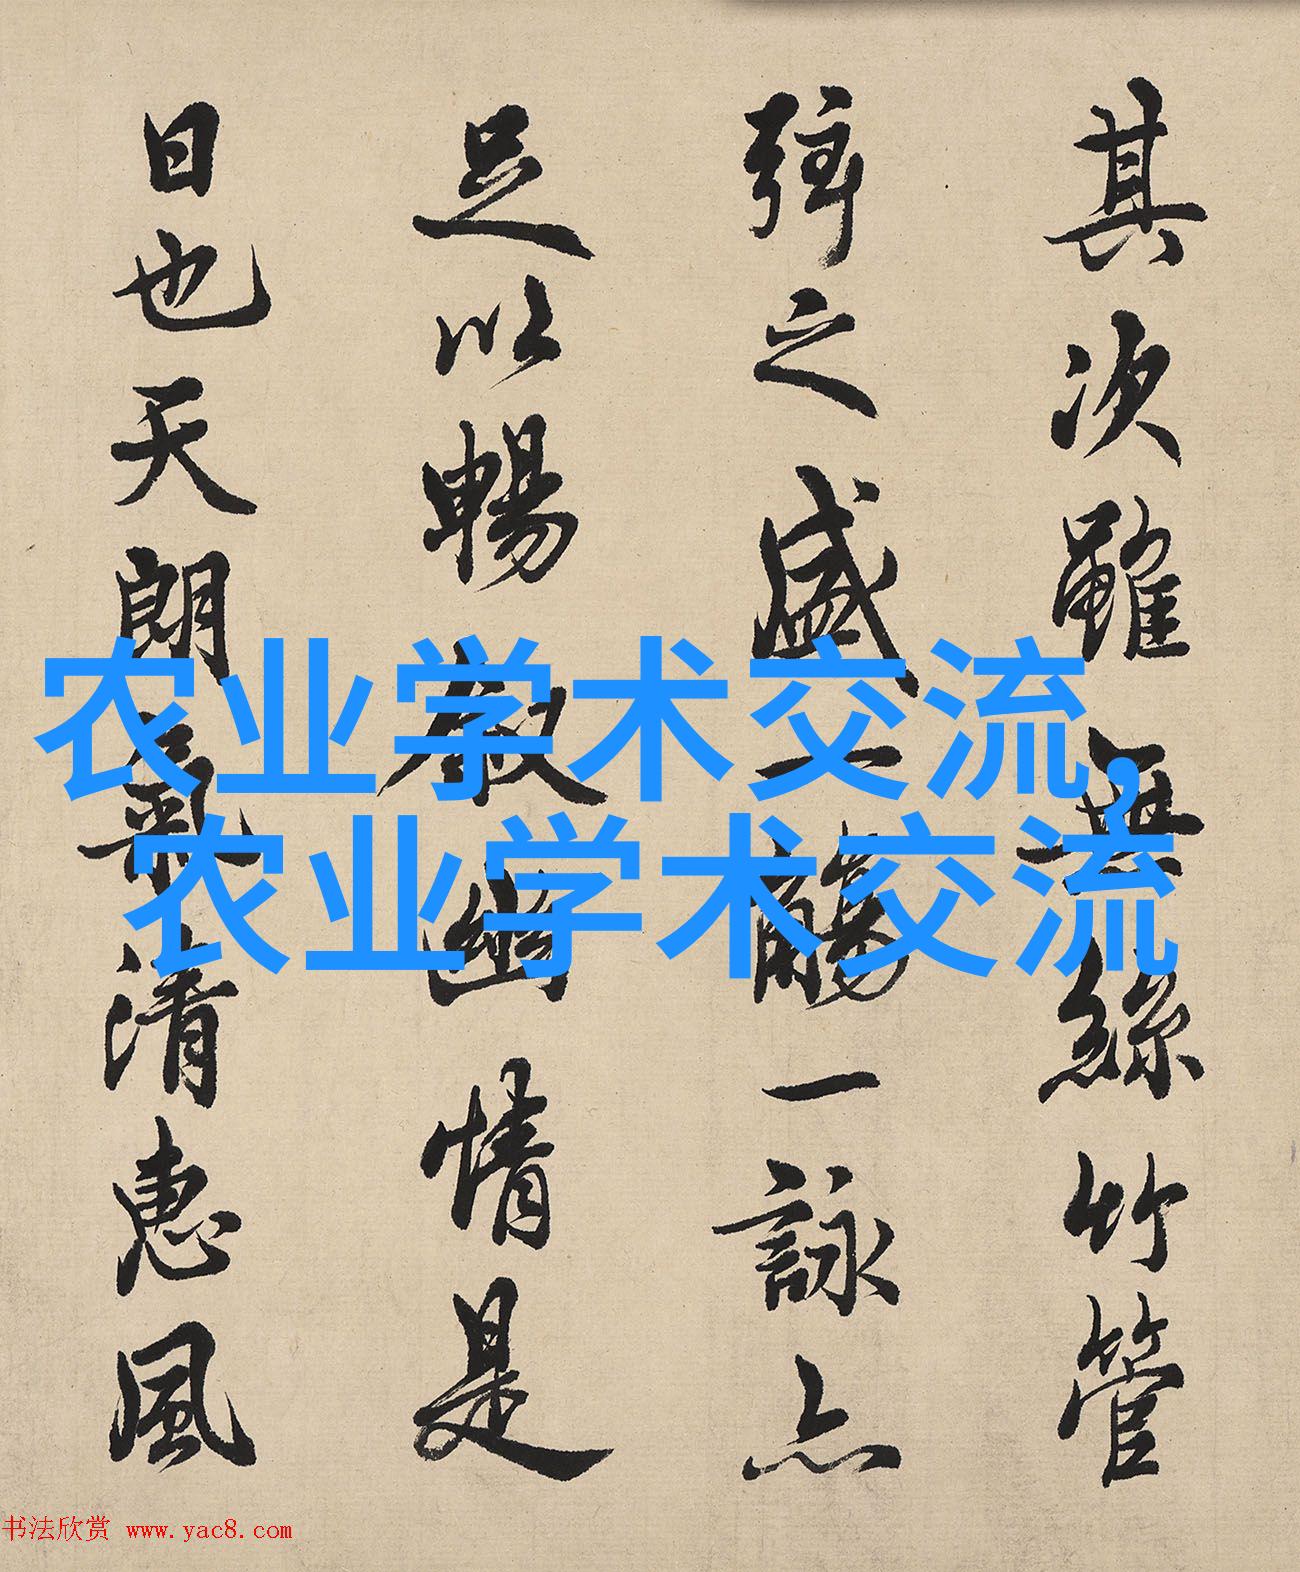 其次雖無絲竹管
弦之盛一觴一詠亦
足以暢敘幽情是
日也天朗氣清惠風
农业学术交流,
农业学术交流
书法欣赏 www.yac8.com